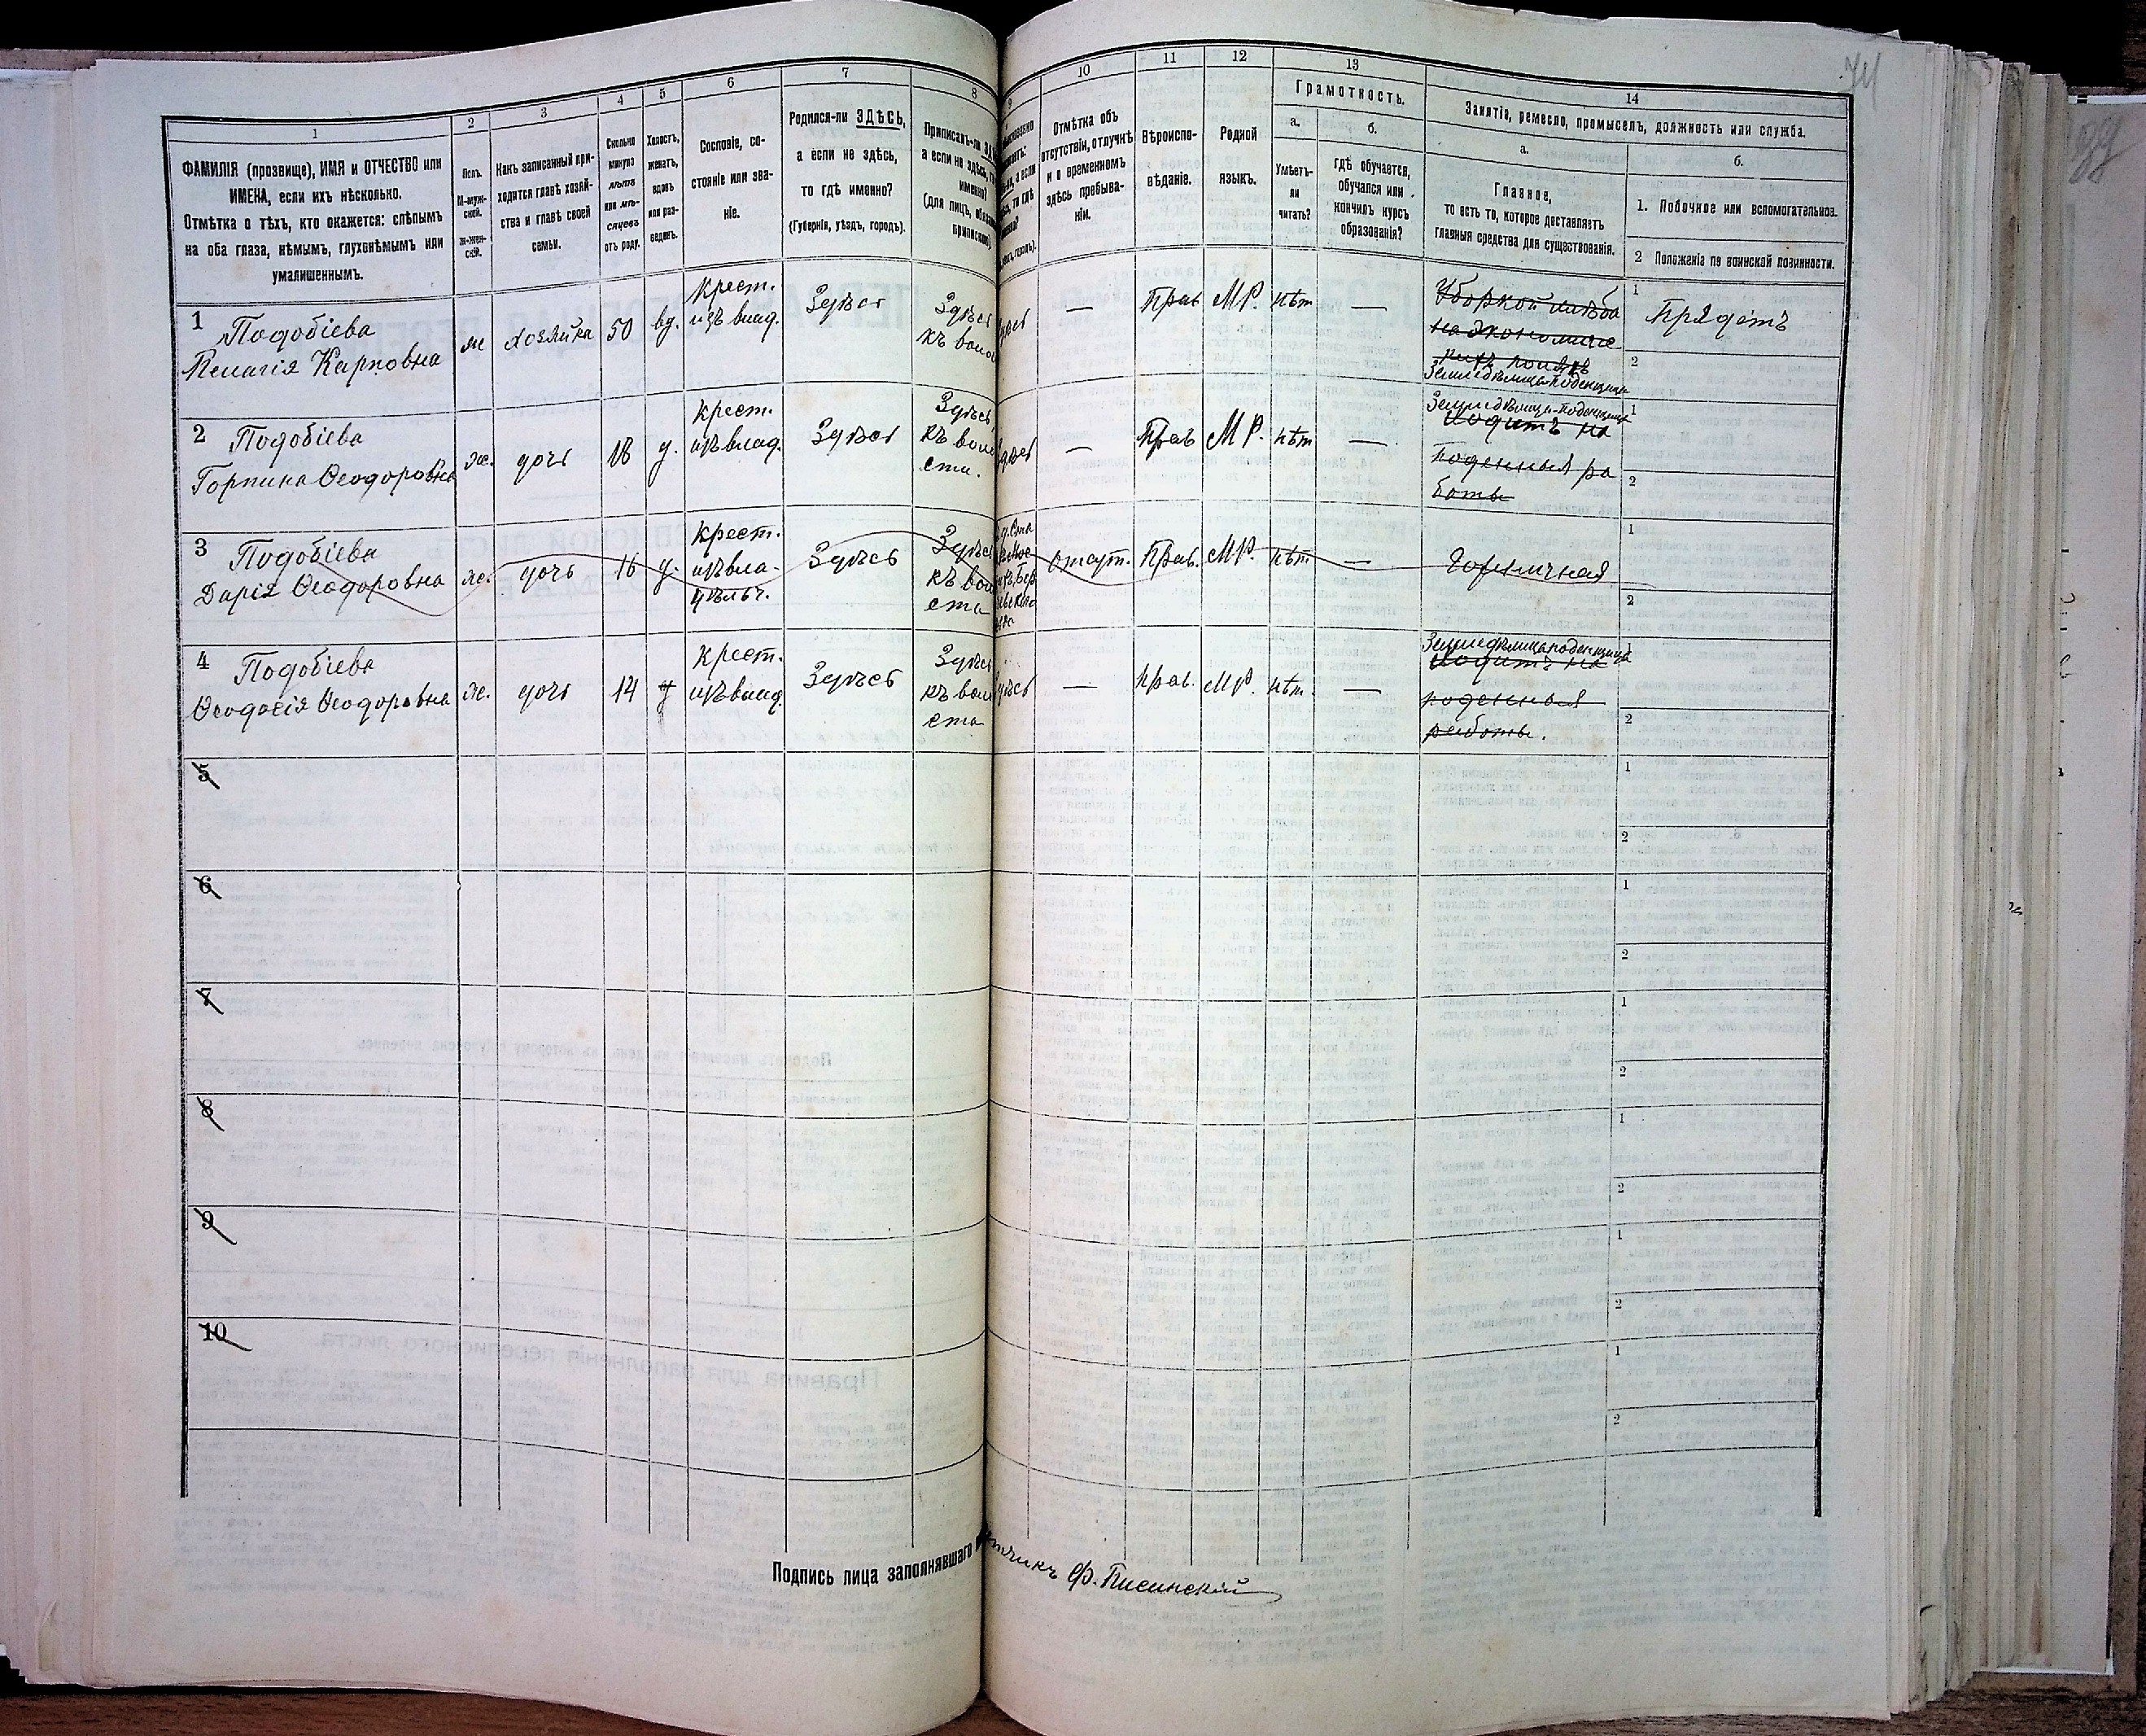 74
1
2
3
4
5
6
7
8
9
10
11
12
13
14
ФАМИЛІЯ (прозвище), ИМЯ и ОТЧЕСТВО или
ИМЕНА, если ихъ нѣсколько.
Отмѣтка о тѣхъ, кто окажется: слѣпымъ
на оба глаза, нѣмымъ, глухонѣмымъ или
умалишеннымъ.
Полъ.
М-муж-
ской.
Ж-жен-
скій.
Какъ записанный при-
ходится главѣ хозяй-
ства и главѣ своей
семьи.
Сколько
минуло
лѣтъ
или мѣ-
сяцевъ
отъ роду.
Холостъ,
женатъ,
вдовъ
или раз-
веденъ.
Сословіе, со-
стояніе или зва-
ніе.
Родился-ли ЗДѢСЬ,
а если не здѣсь,
то гдѣ именно?
(Губернія, уѣздъ, городъ).
Приписанъ-ли
а если не здѣсь,
именно?
(для лицъ,
Отмѣтка объ
отсутствіи, отлучкѣ
и о временномъ
здѣсь пребыва-
ніи.
Вѣроиспо-
вѣданіе.
Родной
языкъ.
Грамотность.
а.
Умѣетъ-
ли
читать?
б.
гдѣ обучается,
обучался или
кончилъ курсъ
образованія?
Занятія, ремесло, промыселъ, должность или служба.
а.
Главное,
то есть то, которое доставляетъ
главныя средства для существованія.
б.
1. Побочное или вспомогательное.
2 Положеніе по воинской повинности.
1 Подобіева
Пелагія Карповна
ж
хозяйка
50
вд.
крест.
изъ влад.
Здѣсь
Здѣсь
къ
—
Прав
МР.
нѣт
—
Уборкой хлѣба
на экономиче
Земледѣлица-поденщица
1
Прядетъ
2
2 Подобіева
Горпина Ѳеодоровна
ж.
дочь
18
д.
крест.
изъ влад.
Здѣсь
Здѣсь
къ воло
сти.
—
Прав
МР.
нѣт
—
Земледѣлица-поденщица
Ходитъ на
поденныя ра
боты
1
2
3 Подобіева
Дарія Ѳеодоровна
ж.
дочь
16
д.
крест.
изъ вла-
дѣльч.
Здѣсь
Здѣсь
къ воло
сти
Прав.
МР.
нѣт
—
Горничная
1
2
4 Подобіева
Ѳеодосія Ѳеодоровна
ж.
дочь
14
д
крест.
изъ влад.
Здѣсь
Здѣсь
къ воло
сти
—
прав.
МР.
нѣт.
—
Земледѣлица поденщица
Ходитъ на
поденныя
работы.
1
2
5
1
2
6
1
2
7
1
2
8
1
2
9
1
2
10
1
2
Подпись лица заполнявшаго
Ф. Писинскій